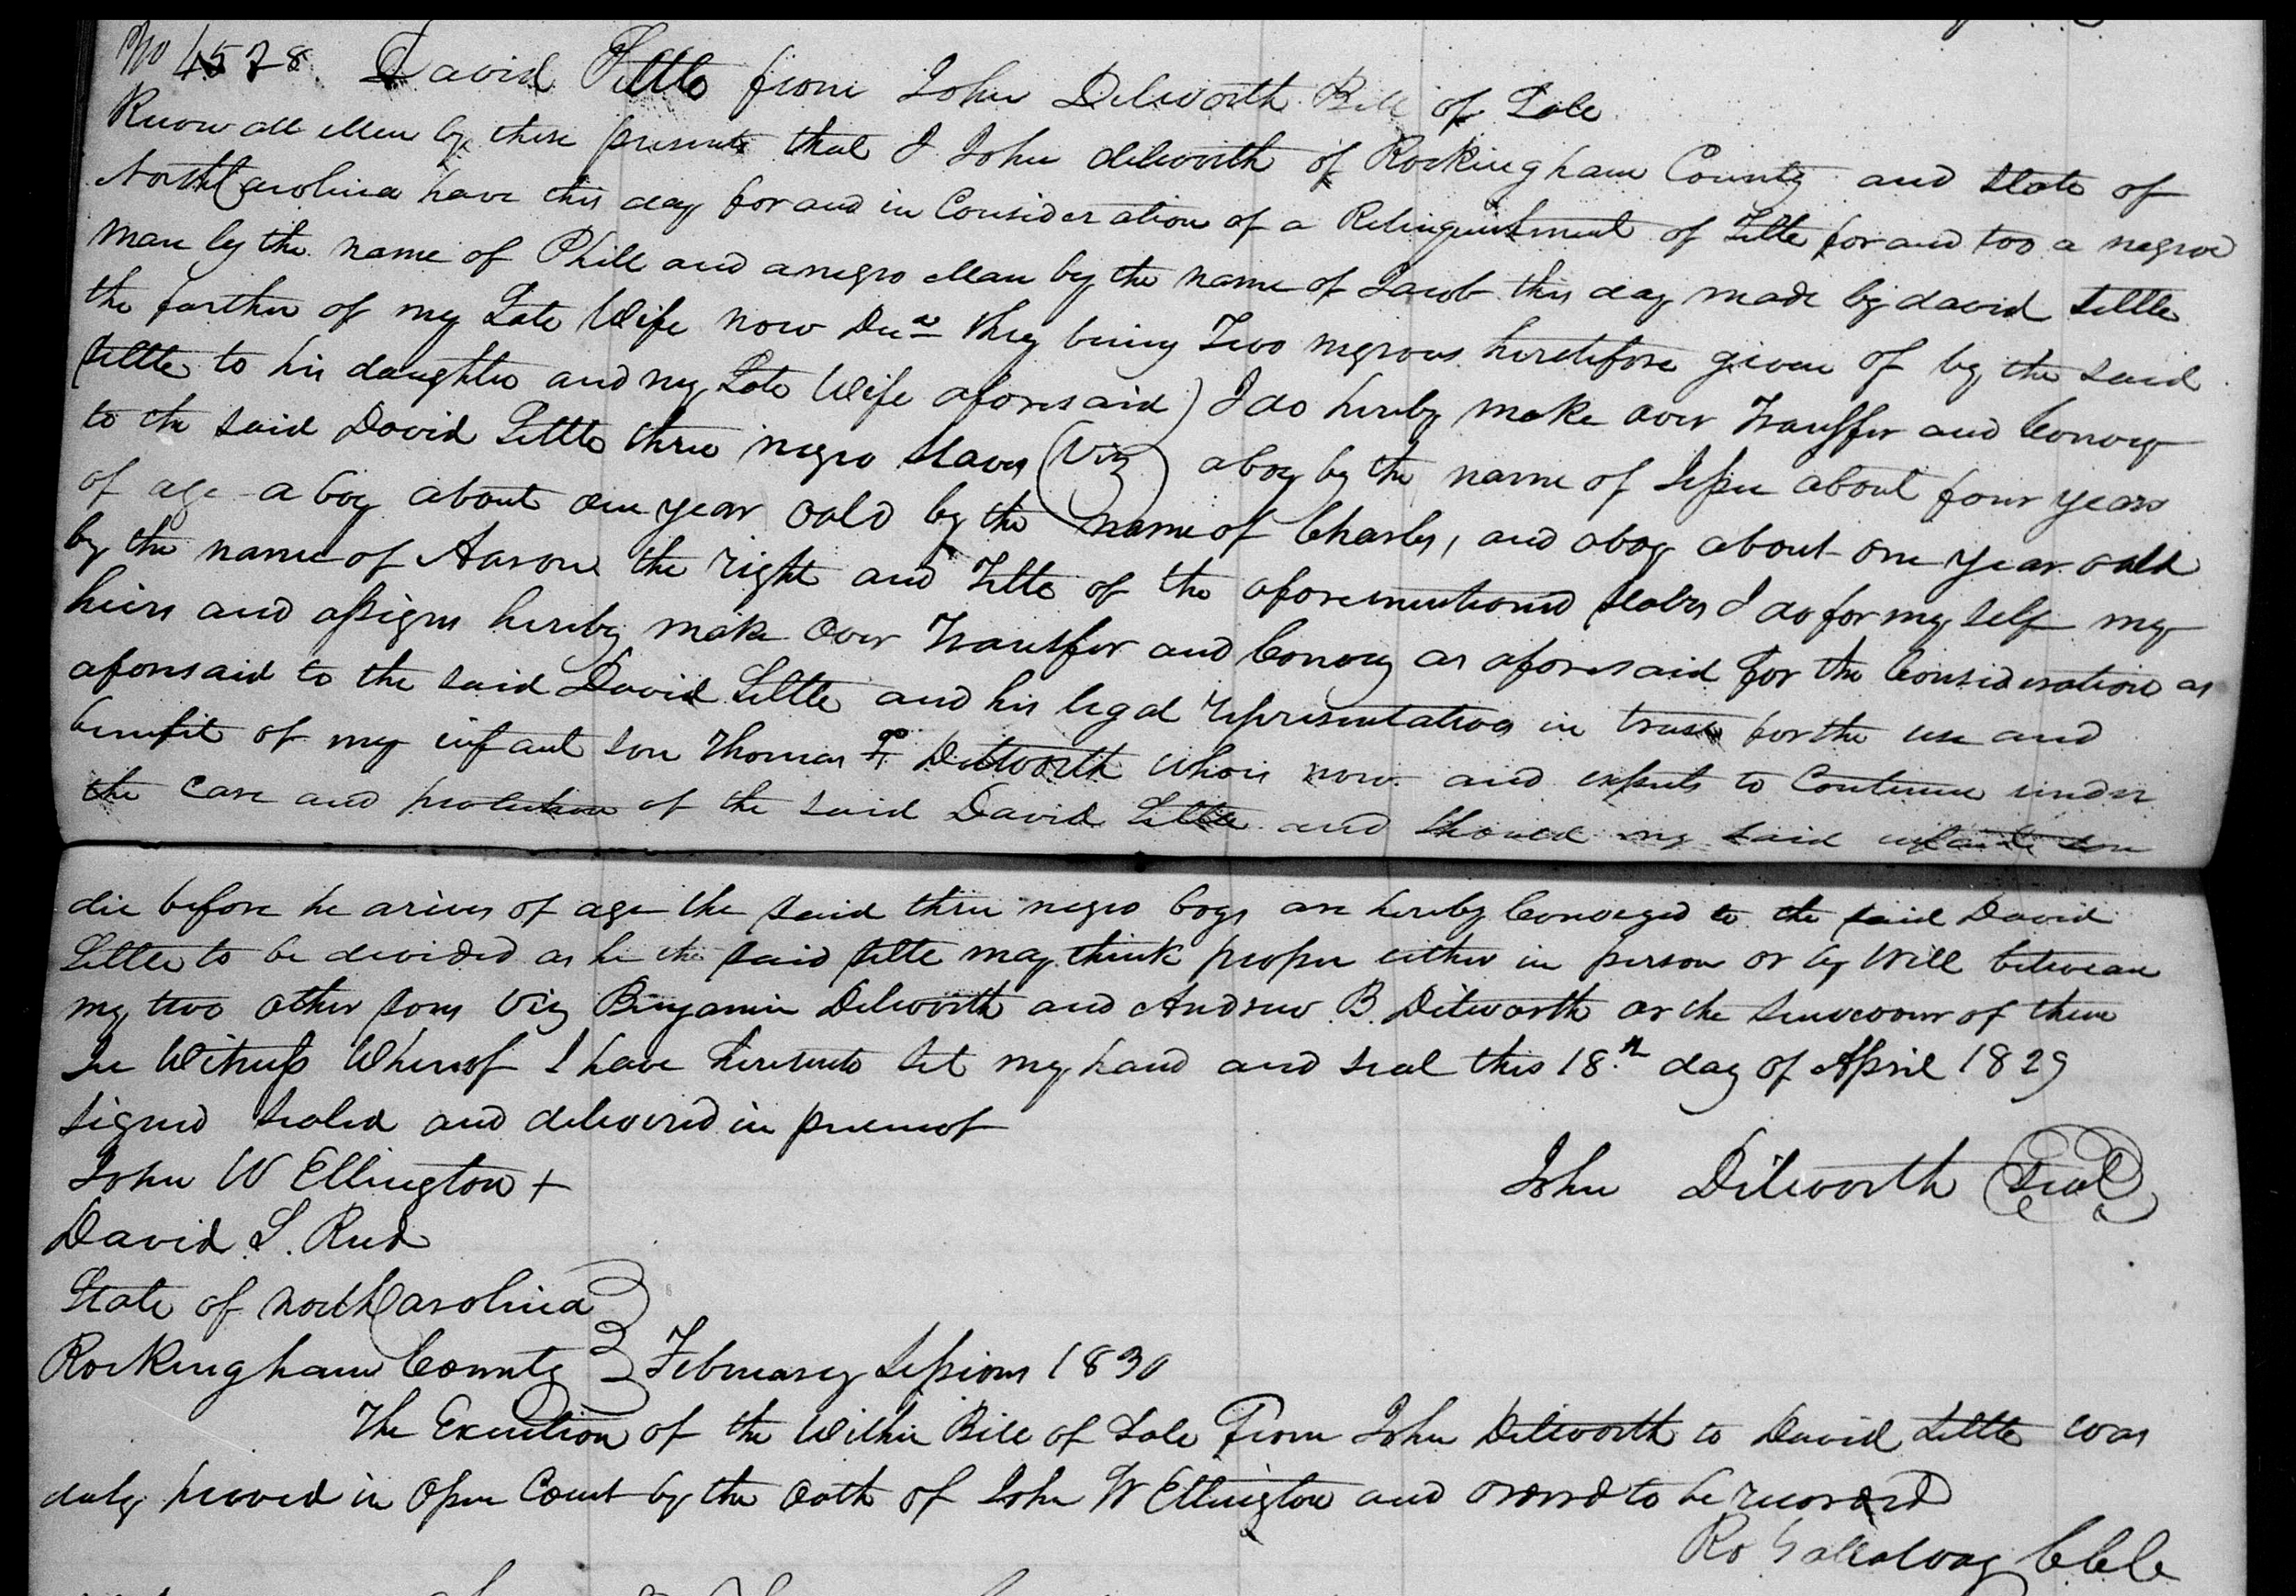 No 4578. David Settle from John Dilworth Bill of Sale
Know all Men by these presents that I John dilworth of Rockingham County and State of
North Carolina have this day for and in Consideration of a Relinquishment of Title for and too a negroe
man by the name of Phill and a negro Man by the name of Jacob this day made by david Settle
the farther of my Late Wife now Decd they being Two negroes heretofore given of by the said
Settle to his daughter and my Late Wife aforesaid) I do hereby make over Transffer and Convey
to the said David Settle three negro Slaves (Viz) aboy by the name of Jesse about four years
of age a boy about one year oald by the name of Charles, and aboy about one year oald
by the name of Aaron the right and Title of the aforementioned slaves I do for my self my
heirs and assigns hereby make over Transfer and Convey as aforesaid for the Consideration as
aforesaid to the said David Settle and his legal representatives in trust for the use and
benifit of my infant son Thomas F Dilworth who is now and expects to Continue under
the Care and protection of the said David Settle and should my said infant son
die before he arives of age the said three negro boys are hereby Conveyed to the said David
Settle to be devided as he the said settle may think proper either in person or by Will between
my two other sons Viz Binjamin Dilworth and Andrew B. Dilworth or the survivour of them
In Witness Whereof I have hereunto set my hand and seal this 18.th day of April 1829
signed sealed and delivered in presents of
John W Ellington +
John Dilworth Seal
David S. Reid
State of North Carolina
Rockingham County February Sessions 1830
The Execution of the Within Bill of Sale From John Dilworth to David Settle was
duly proved in Open Court by the Oath of John W Ellington and ordered to be recorded
Ro Gallaway Clk